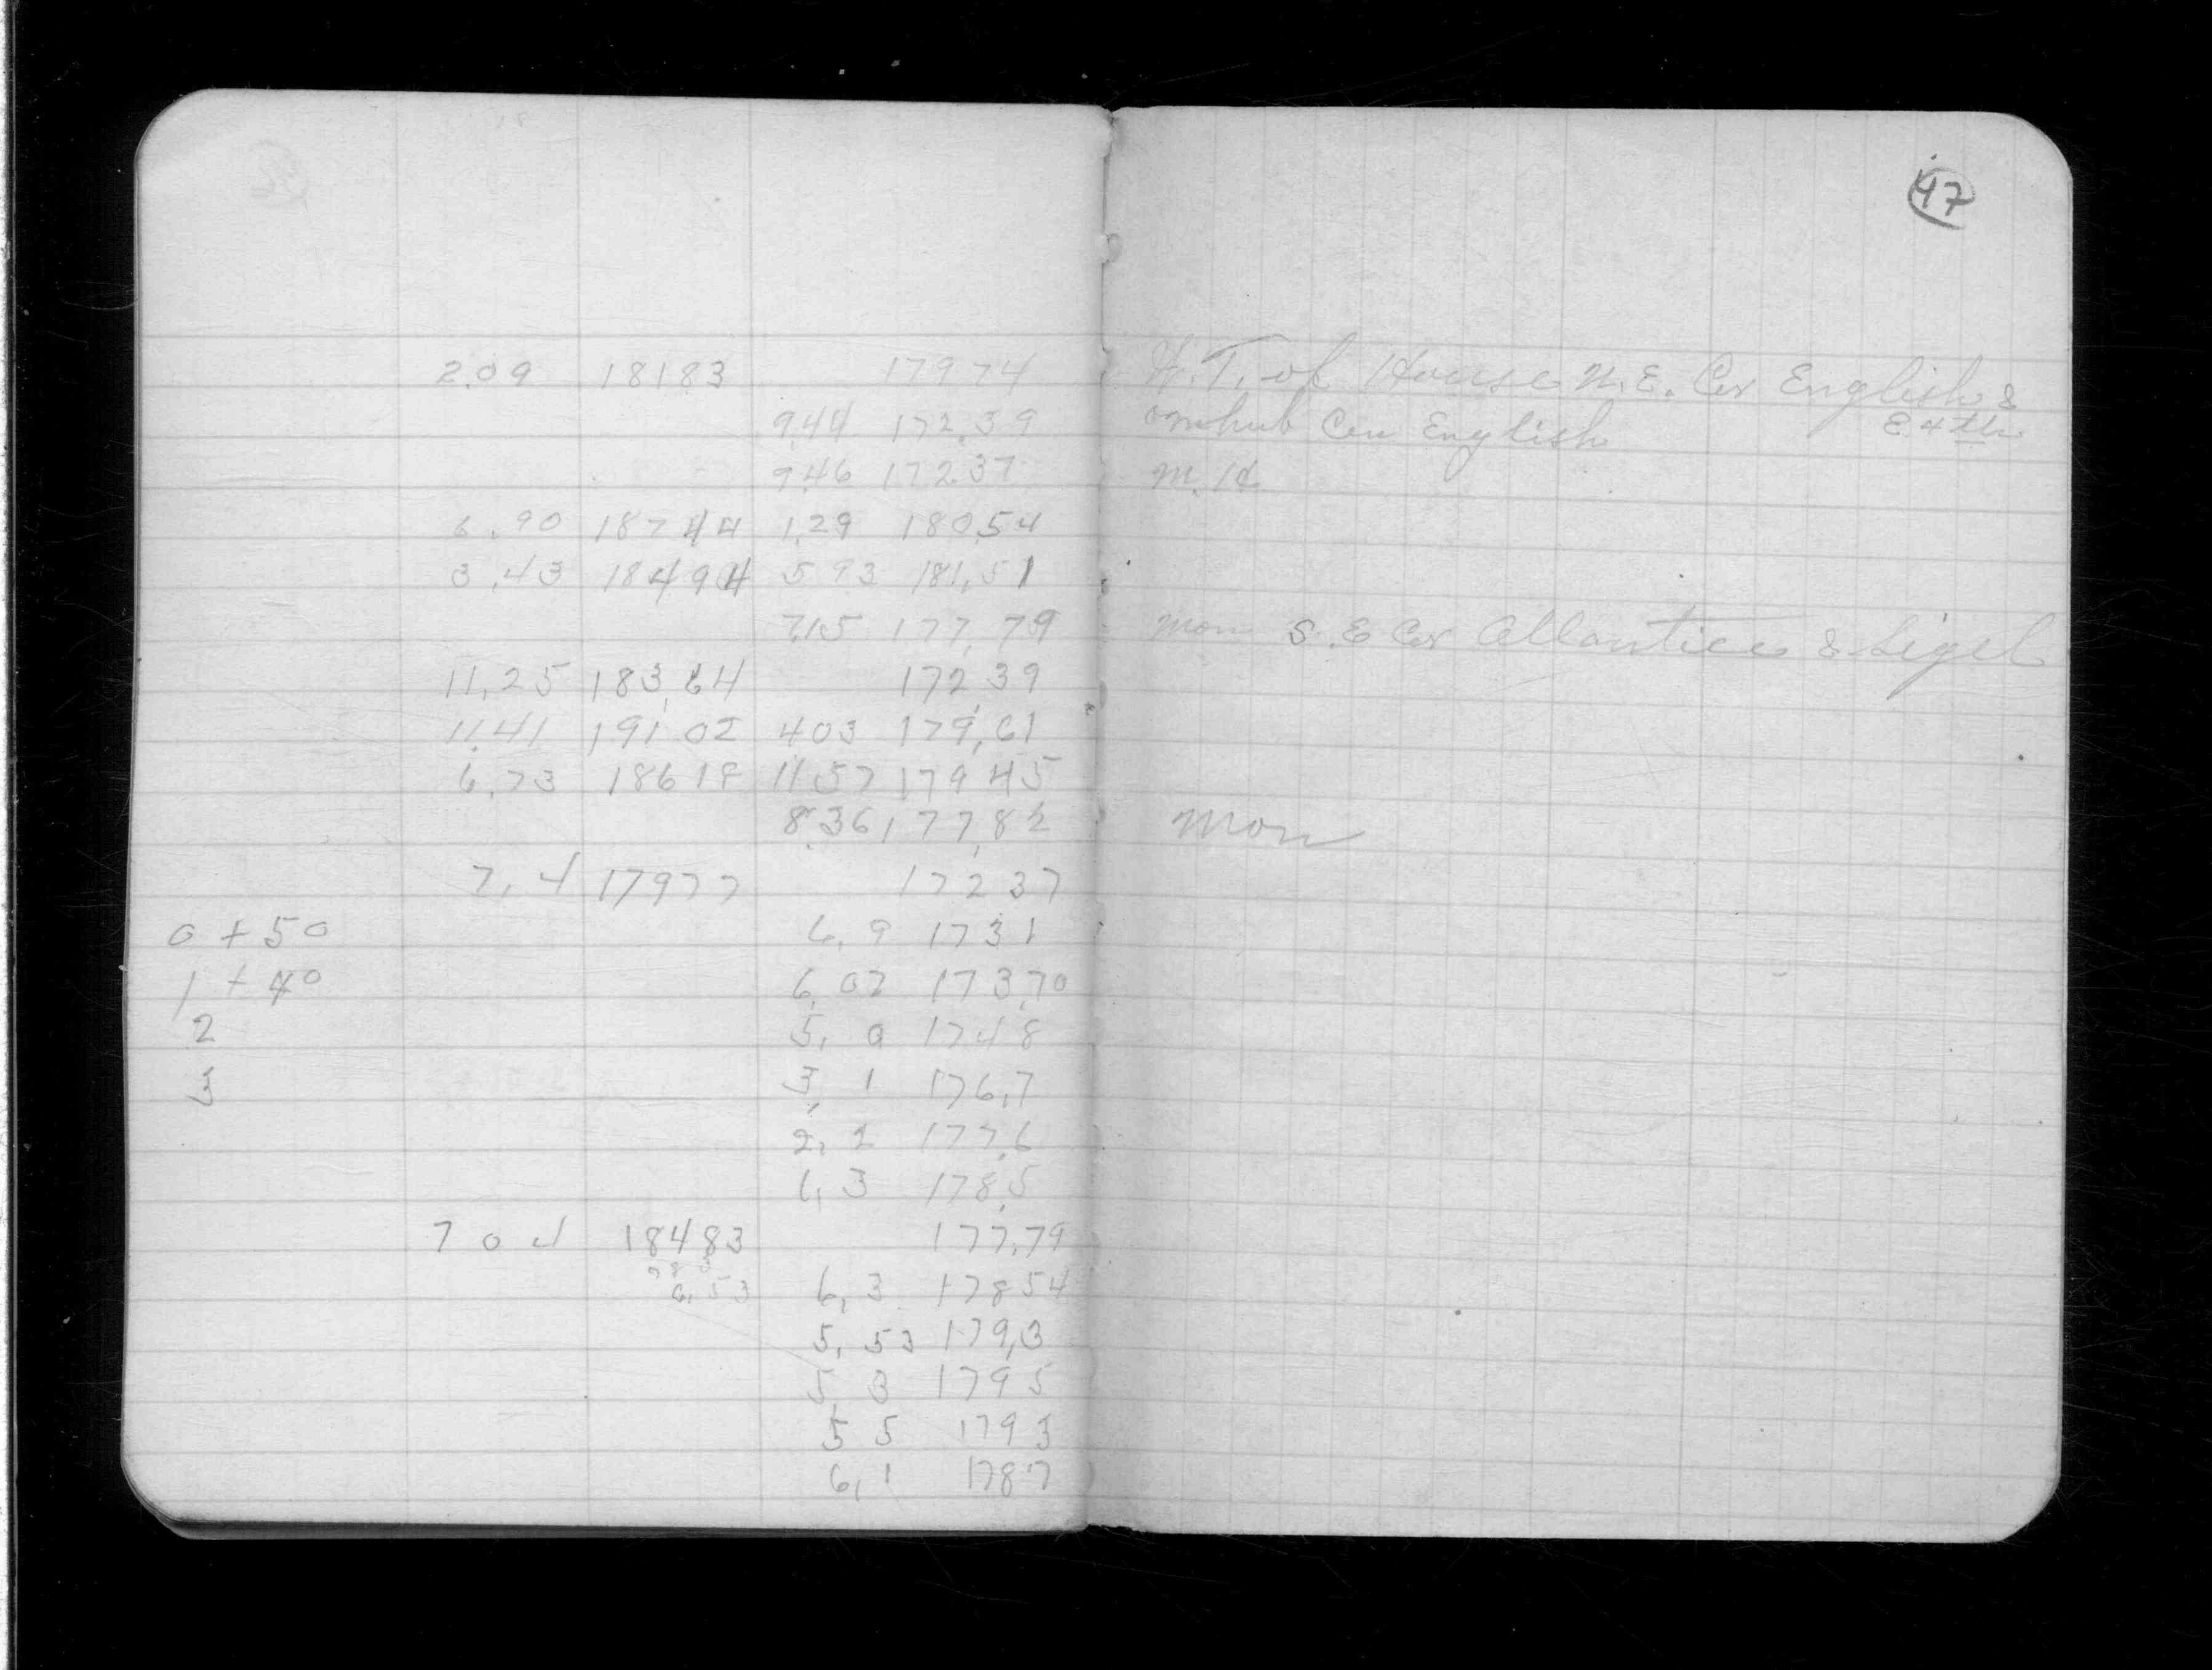 47
2.09 18183 17974 W.T. of House N.E. Cor English &
9.44 172.39 on hub Cen English E 4th
9.46 172.37 M.H.
6.90 18744 1.29 180.54
3.43 18494 5 93 181.51
7.15 177.79 Mon S.E Cor Atlantic & Sigel
11.25 183.64 172.39
11.41 191 02 4 03 179.61
6.73 18618 11 57 179 45
8.36 177.82 Mon
7.4 17977 172 37
0 + 50 6.9 173 1
1 + 40 6.07 173.70
2 5.0 174 8
3 3.1 176.7
2.2 177.6
1.3 178.5
7 0 4 184 83 177.79
6.53 6.3 178 54
5.53 179.3
5 3 179 5
5 5 179 3
6.1 178 7